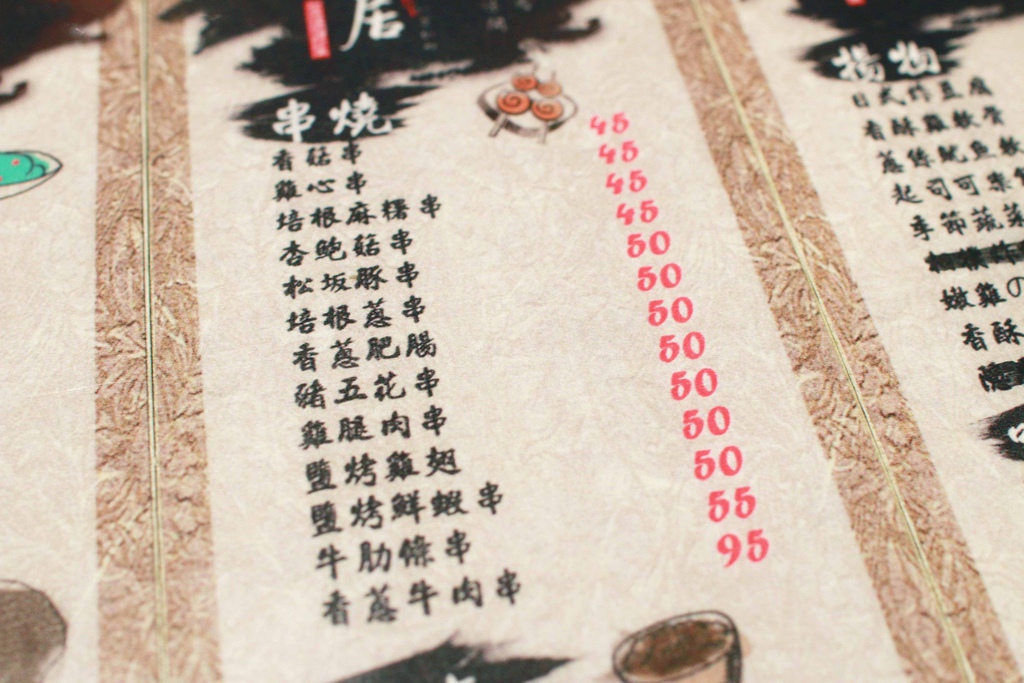 居
串燒
香菇串 45
雞心串 45
培根麻糬串 45
杏鮑菇串 45
松坂豚串 50
培根蔥串 50
香蔥肥腸 50
豬五花串 50
雞腿肉串 50
鹽烤雞翅 50
鹽烤鮮蝦串 50
牛肋條串 55
香蔥牛肉串 95
揚物
日式炸豆腐
香酥雞軟骨
蔥絲魷魚軟
起司可樂
季節蔬菜
嫩雞の
香酥